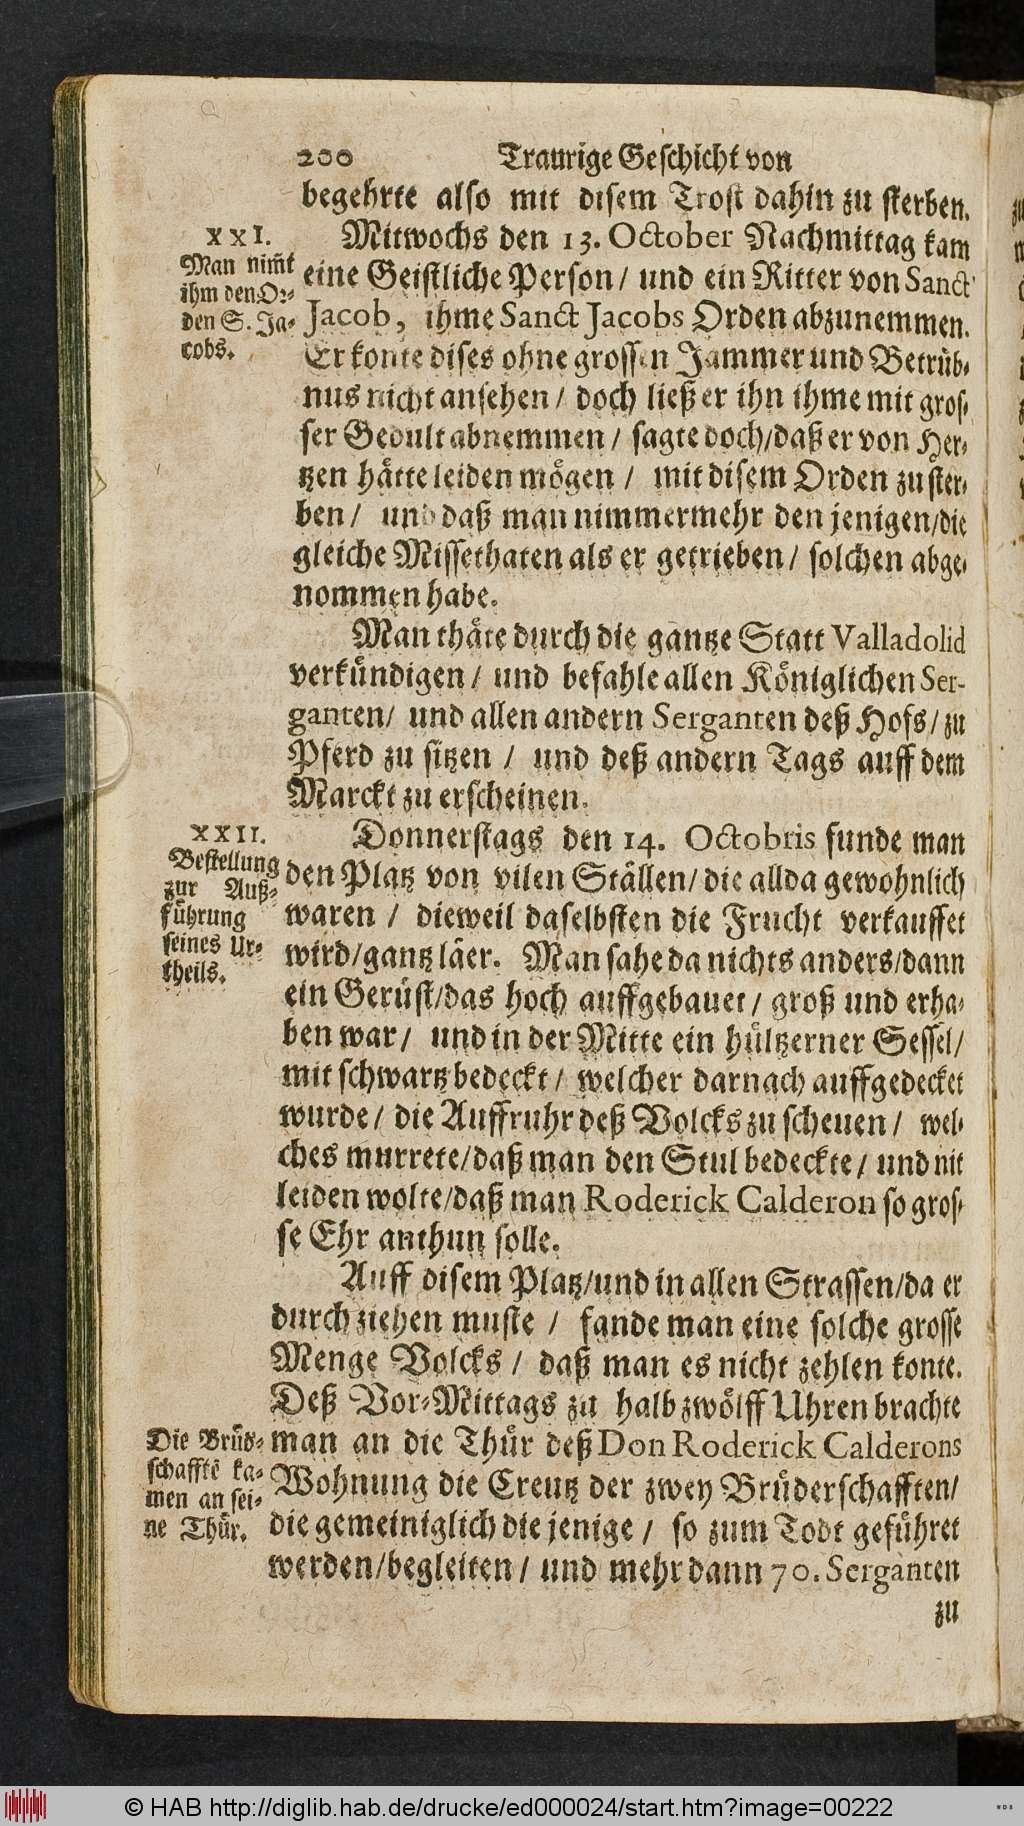 200 Traurige Geschicht von
begehrte also mit disem Trost dahin zu sterben.
XXI.
Man nim̃t
ihm den Or-
den S. Ja-
cobs.
Mitwochs den 13. October Nachmittag kam
eine Geistliche Person / und ein Ritter von Sanct
Jacob, ihme Sanct Jacobs Orden abzunemmen.
Er konte dises ohne grossen Jammer und Betrüb-
nus nicht ansehen / doch ließ er ihn ihme mit gros-
ser Gedult abnemmen / sagte doch / daß er von Her-
tzen hätte leiden mögen / mit disem Orden zu ster-
ben / und daß man nimmermehr den jenigen / die
gleiche Missethaten als er getrieben / solchen abge-
nommen habe.
Man thäte durch die gantze Statt Valladolid
verkündigen / und befahle allen Königlichen Ser-
ganten / und allen andern Serganten deß Hofs / zu
Pferd zu sitzen / und deß andern Tags auff dem
Marckt zu erscheinen.
XXII.
Bestellung
zur Auß-
führung
seines Ur-
theils.
Donnerstags den 14. Octobris funde man
den Platz von vilen Ställen / die allda gewohnlich
waren / dieweil daselbsten die Frucht verkauffet
wird / gantz läer. Man sahe da nichts anders / dann
ein Gerüst / das hoch auffgebauet / groß und erha-
ben war / und in der Mitte ein hültzerner Sessel /
mit schwartz bedeckt / welcher darnach auffgedecket
wurde / die Auffruhr deß Volcks zu scheuen / wel-
ches murrete / daß man den Stul bedeckte / und nit
leiden wolte / daß man Roderick Calderon so gros-
se Ehr anthun solle.
Auff disem Platz / und in allen Strassen / da er
durch ziehen muste / fande man eine solche grosse
Menge Volcks / daß man es nicht zehlen konte.
Deß Vor-Mittags zu halb zwölff Uhren brachte
Die Brüd-
schafftẽ ka-
men an sei-
ne Thür.
man an die Thür deß Don Roderick Calderons
Wohnung die Creutz der zwey Brüderschafften /
die gemeiniglich die jenige / so zum Todt geführet
werden / begleiten / und mehr dann 70. Serganten
zu
© HAB http://diglib.hab.de/drucke/ed000024/start.htm?image=00222